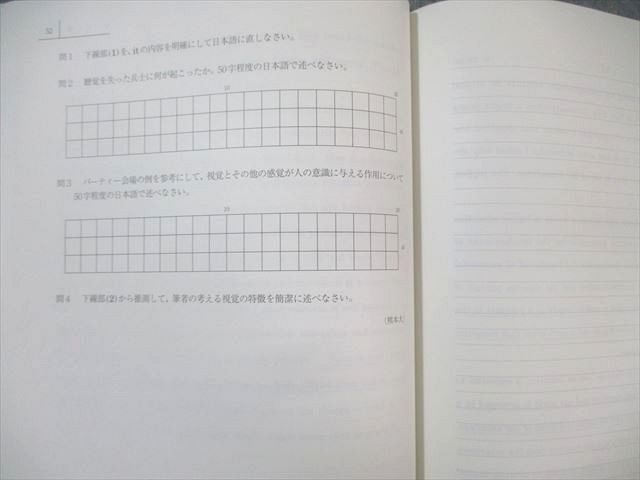 52
問1 下線部(1)を、itの内容を明確にして日本語に直しなさい。
問2 聴覚を失った兵士に何が起こったか。50字程度の日本語で述べなさい。
10
20
問3 パーティー会場の例を参考にして、視覚とその他の感覚が人の意識に与える作用について
50字程度の日本語で述べなさい。
10
20
問4 下線部(2)から推測して、筆者の考える視覚の特徴を簡潔に述べなさい。
(熊本大)